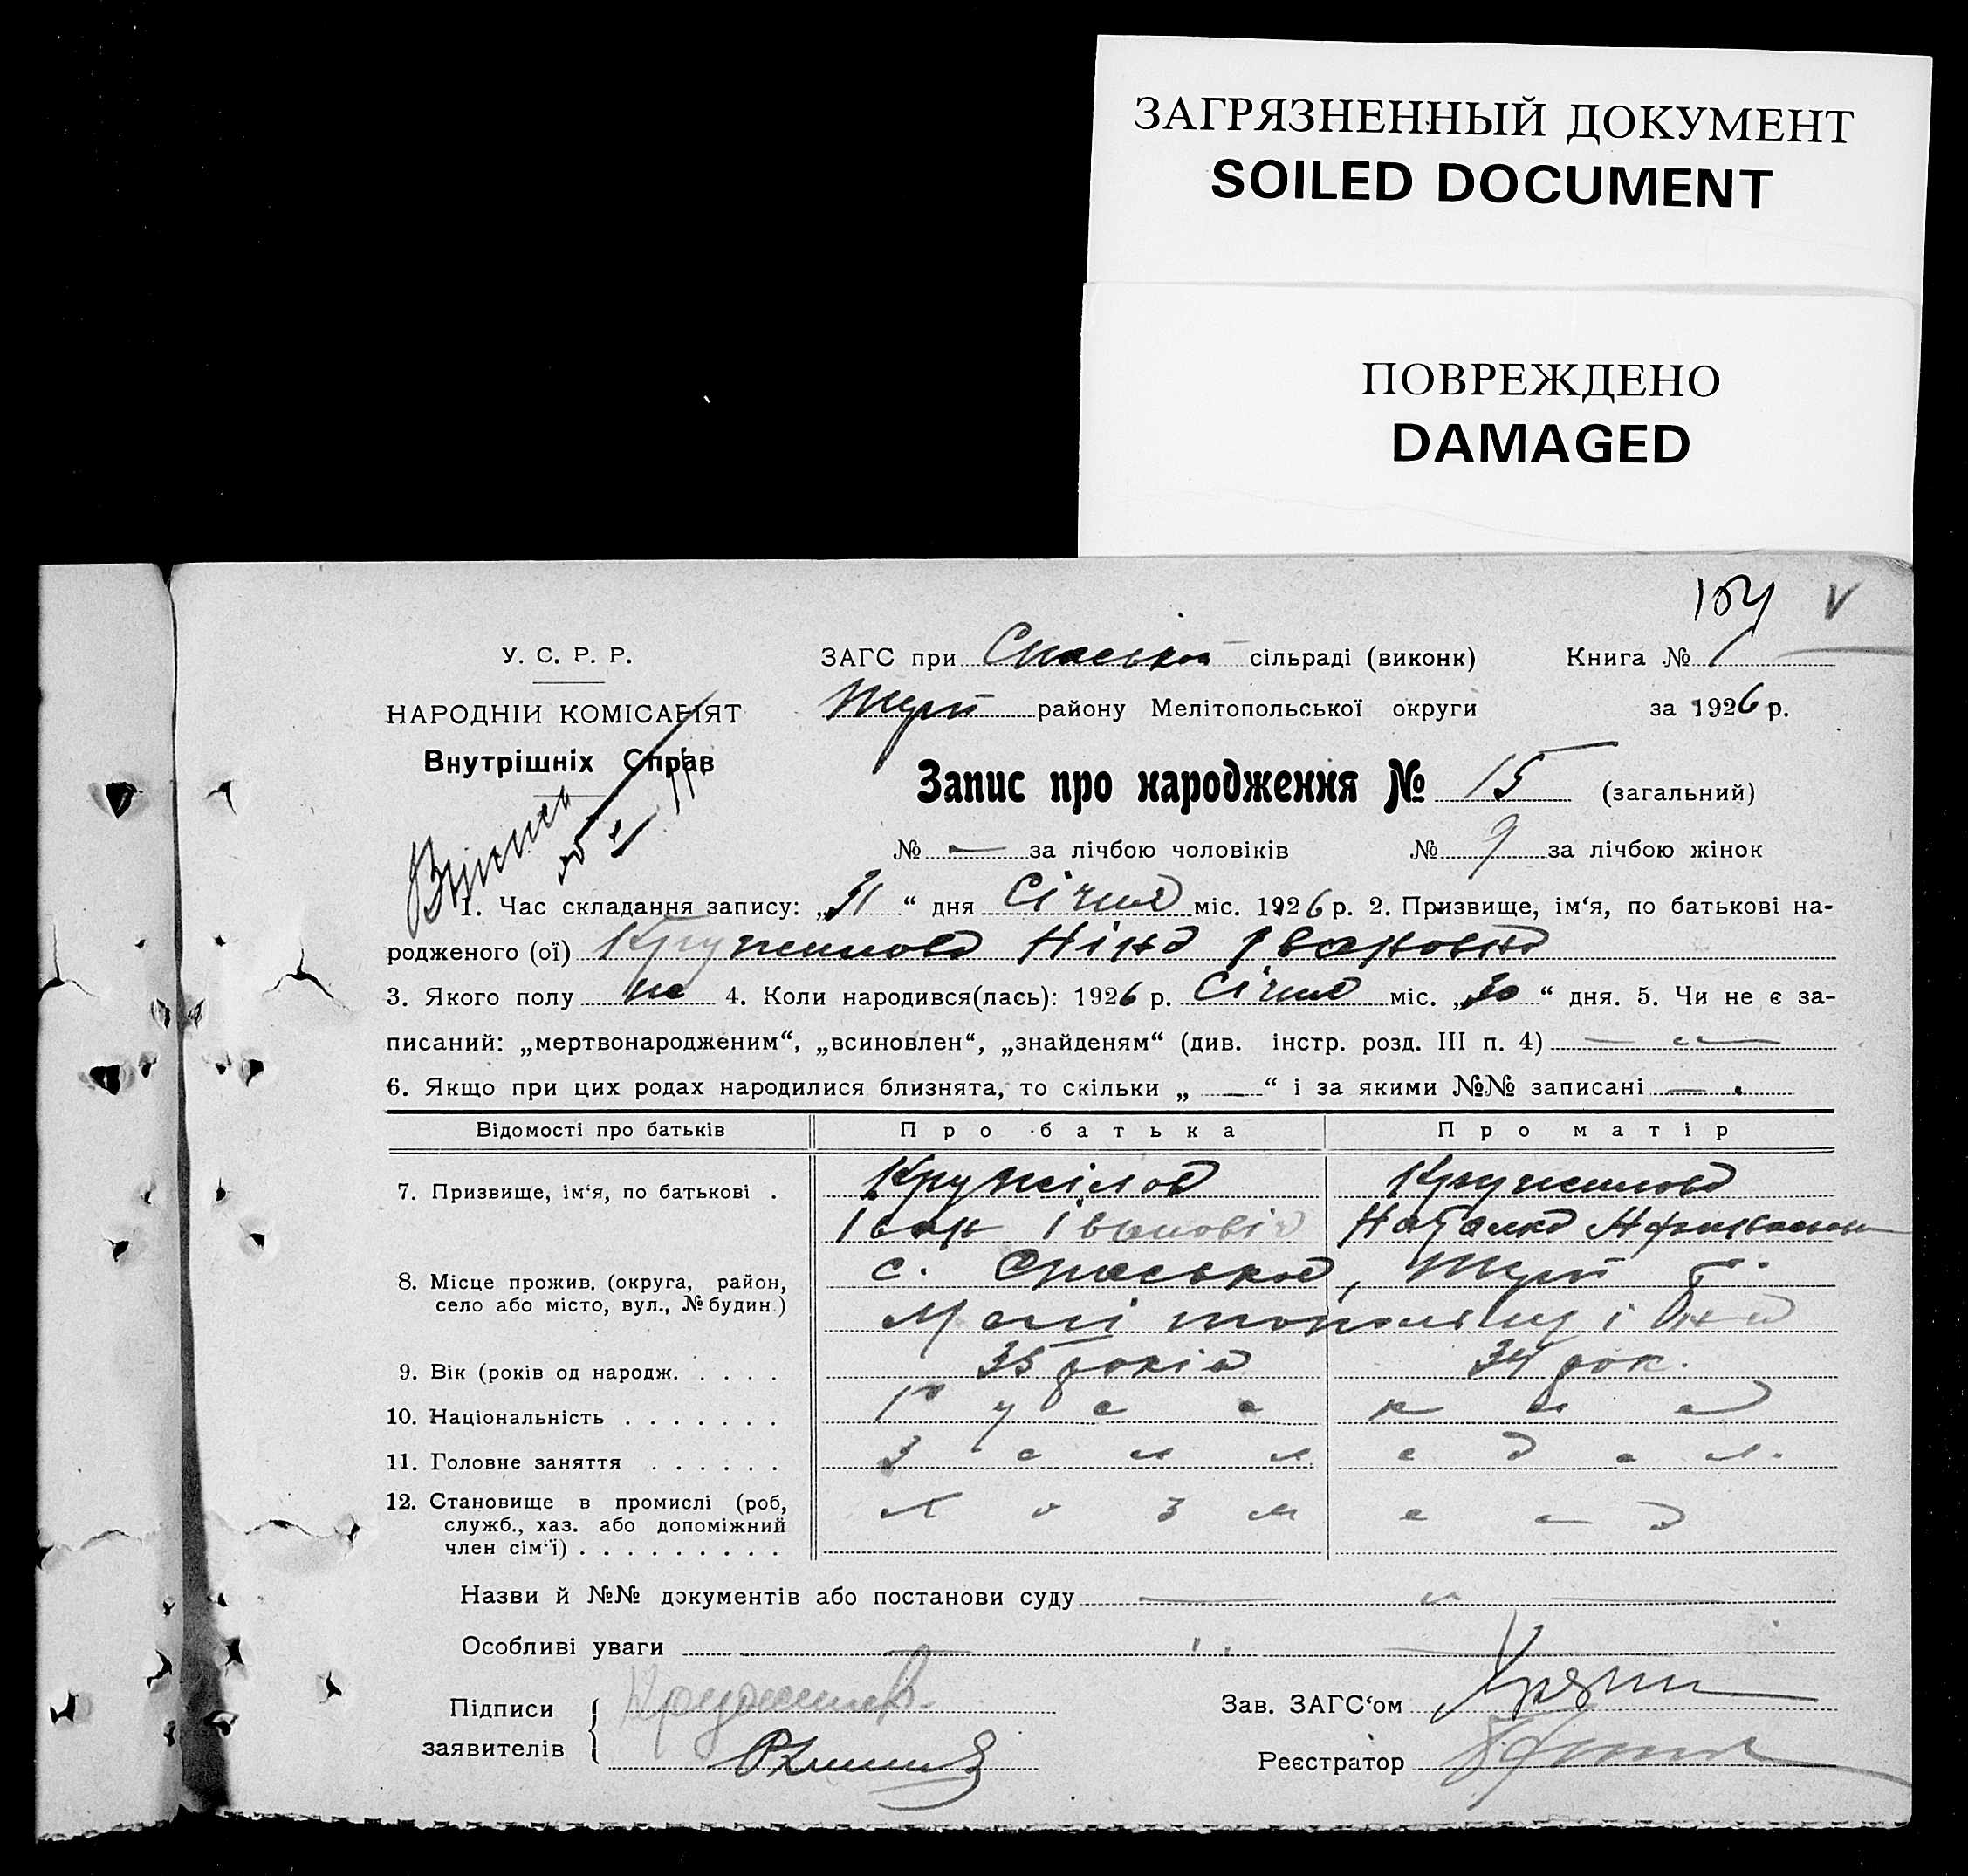 ЗАГРЯЗНЕННЫЙ ДОКУМЕНТ
SOILED DOCUMENT
ПОВРЕЖДЕНО
DAMAGED
104 V
У. С. Р. Р.
НАРОДНІЙ КОМІСАРІЯТ
Внутрішніх Справ
ЗАГС при Спаській сільраді (виконк) Книга № 1
району Мелітопольської округи за 1926 р.
Запис про народження № 15 (загальний)
№ — за лічбою чоловіків № 9 за лічбою жінок
1. Час складання запису: „31“ дня Січня міс. 1926 р. 2. Призвище, ім‘я, по батькові на-
родженого (ої) Кружилова Ніна Івановна
3. Якого полу жо 4. Коли народився(лась): 1926 р. Січня міс. „30“ дня. 5. Чи не є за-
писаний: „мертвонародженим“, „всиновлен“, „знайденям“ (див. інстр. розд. III п. 4) —
6. Якщо при цих родах народилися близнята, то скільки „ — “ і за якими №№ записані —
Відомості про батьків Про батька Про матір
7. Призвище, ім‘я, по батькові . Кружілов Кружилова
Іван Івановіч Наталка
8. Місце прожив. (округа, район, с. Спаське,
село або місто, вул., № будин.)
9. Вік (років од народж. . . . . 35 років 34 рок.
10. Національність . . . . . . .
11. Головне заняття . . . . . .
12. Становище в промислі (роб,
служб., хаз. або допоміжний
член сім‘ї) . . . . . . . . .
Назви й №№ документів або постанови суду —
Особливі уваги —
Підписи Кружилов Зав. ЗАГС‘ом
заявителів Реєстратор